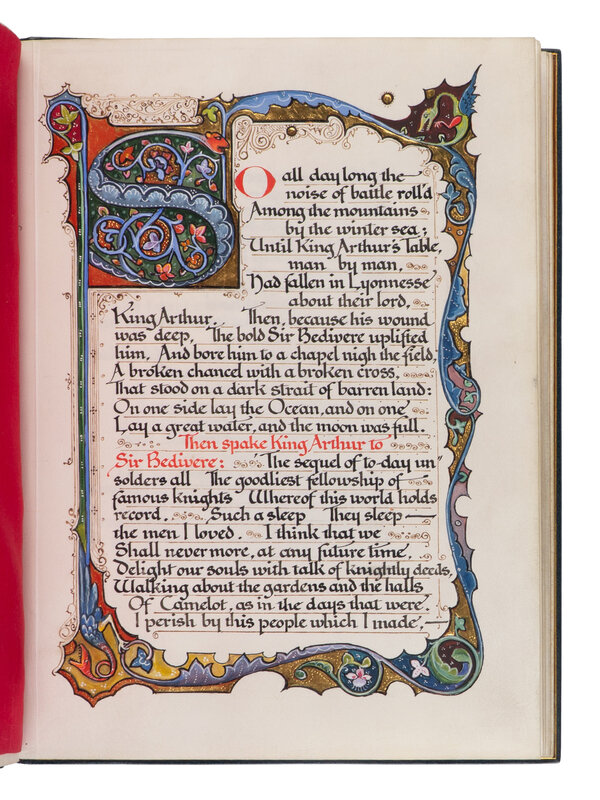 So all day long the
noise of battle roll'd
Among the mountains
by the winter sea;
Until King Arthur's Table,
man by man,
Had fallen in Lyonnesse
about their lord,
King Arthur. Then, because his wound
was deep, The bold Sir Bedivere uplifted
him, And bore him to a chapel nigh the field,
A broken chancel with a broken cross,
That stood on a dark strait of barren land:
On one side lay the Ocean, and on one
Lay a great water, and the moon was full.
Then spake King Arthur to
Sir Bedivere: "The sequel of to-day un"
solders all The goodliest fellowship of
famous knights Whereof this world holds
record. Such a sleep They sleep —
the men I loved. I think that we
Shall never more, at any future time,
Delight our souls with talk of knightly deeds,
Walking about the gardens and the halls
Of Camelot, as in the days that were.
I perish by this people which I made, —